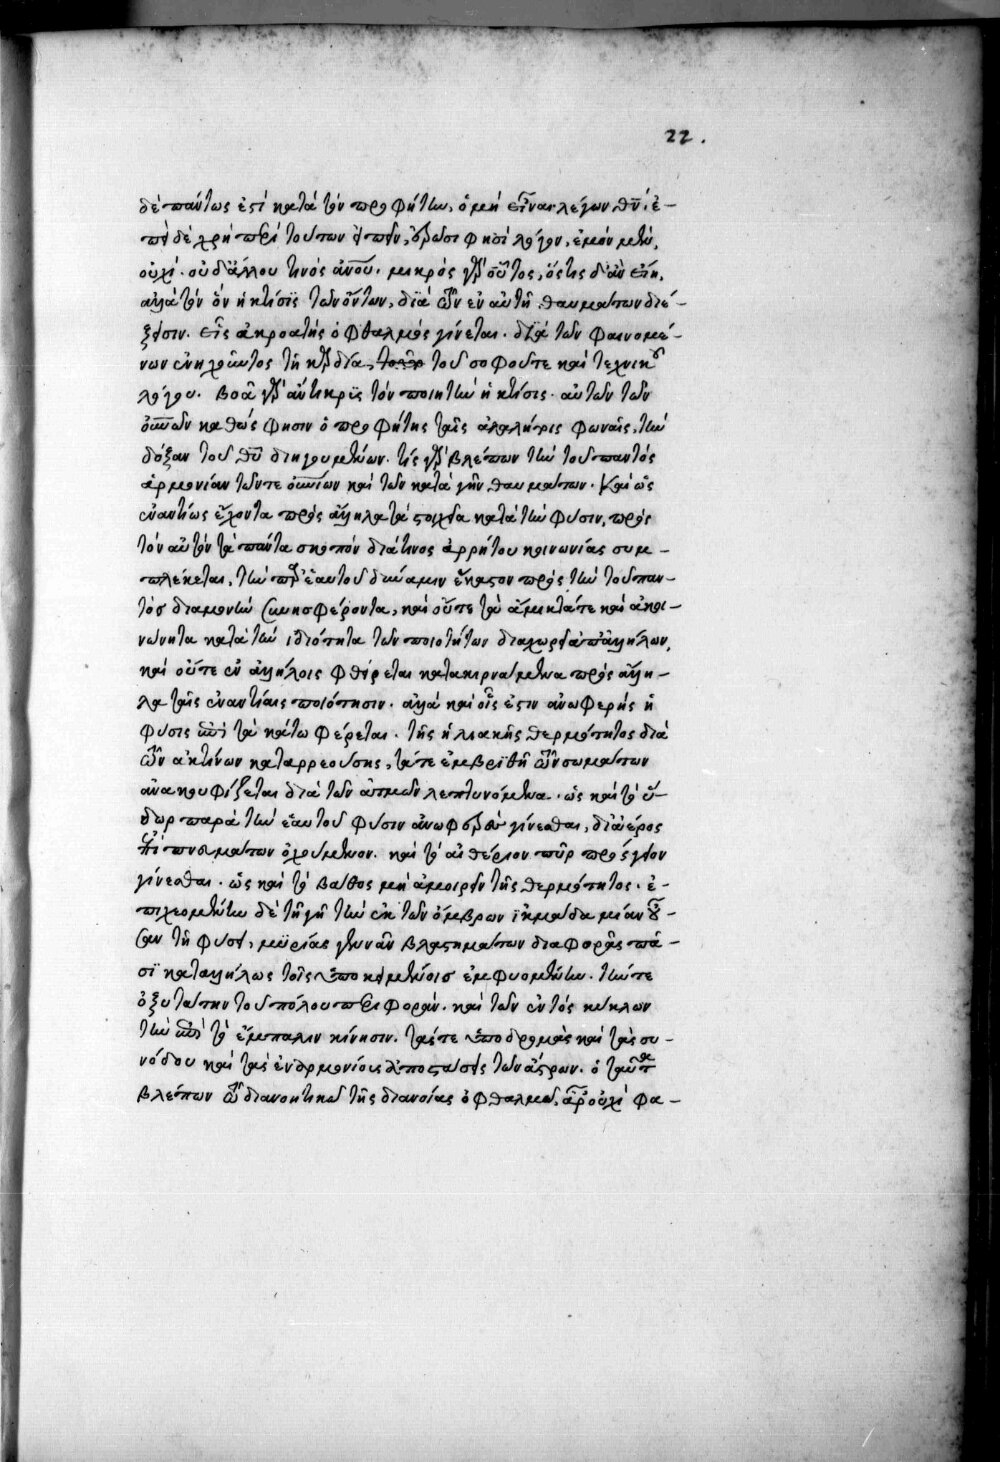 22.
δὲ πάντως ἐστὶ κατὰ τὸν προφήτην, ὁ μὴ εἶναι λέγων θν̅. ἐ-
πεὶ δὲ χρὴ περὶ τούτων εἰπεῖν, φησὶ λόγον, ἐμὸν μὲν,
οὐχί. οὐδὲ ἄλλου τινὸς ἀνου̅. μικρὸς γὰρ οὗτος, ὅστις δ' ἂν εἴη,
ἀλλὰ τὸν ὃν ἡ κτίσις τῶν ὄντων, διὰ τῶν ἐν αὐτῇ θαυμάτων διέ-
ξεισιν. εἷς ἀκροατὴς ὁ ὀφθαλμὸς γίνεται. διὰ τῶν φαινομέ-
νων ἐνηχοῦντος τῇ καρδίᾳ, τοῦ σοφοῦ τε καὶ τεχνικοῦ
λόγου. βοᾶ γὰρ ἄντικρυς τὸν ποιητὴν ἡ κτίσις. αὐτῶν τῶν
οὐνῶν καθώς φησιν ὁ προφήτης ταῖς ἀλαλήτοις φωναῖς, τὴν
δόξαν τοῦ θυ̅ διηγουμένων. τίς γὰρ βλέπων τὴν τοῦ παντὸς
ἁρμονίαν τῶν τε οὐνίων καὶ τῶν κατὰ γῆν θαυμάτων. καὶ ὡς
ἐναντίως ἔχοντα πρὸς ἄλληλα τὰ στοιχεῖα κατὰ τὴν φύσιν, πρὸς
τὸν αὐτὸν τὰ πάντα σκοπὸν διά τινος ἀρρήτου κοινωνίας συμ-
πλέκεται, τὴν παρ' ἑαυτοῦ δύναμιν ἕκαστον πρὸς τὴν τοῦ παν-
τὸς διαμονὴν συνεισφέροντα, καὶ οὔτε τὰ ἄμικτά τε καὶ ἀκοι-
νώνητα κατὰ τὴν ἰδιότητα τῶν ποιοτήτων διαχωρεῖ ἀπ' ἀλλήλων,
καὶ οὔτε ἐν ἀλλήλοις φθείρεται κατακιρνάμενα πρὸς ἄλλη-
λα ταῖς ἐναντίαις ποιότησιν. ἀλλὰ καὶ οἷς ἐστιν ἀνωφερὴς ἡ
φύσις ἐπὶ τὰ κάτω φέρεται. τῆς ἡλιακῆς θερμότητος διὰ
τῶν ἀκτίνων καταρρεούσης, τά τε ἐμβριθῆ τῶν σωμάτων
ἀνακουφίζεται διὰ τῶν ἀτμῶν λεπτυνόμενα. ὡς καὶ τὸ ὕ-
δωρ παρὰ τὴν ἑαυτοῦ φύσιν ἀνωφερὲς γίνεσθαι, δι' ἀέρος
ἐπὶ πνευμάτων ὀχούμενον. καὶ τὸ αἰθέριον πῦρ πρόσγειον
γίνεσθαι. ὡς καὶ τὸ βάθος μὴ ἀμοιρεῖν τῆς θερμότητος. ἐ-
πιχεομένην δὲ τῇ γῇ τὴν ἐκ τῶν ὄμβρων ἰκμάδα μίαν οὖ-
σαν τῇ φύσει, μυρίας γεννᾶν βλαστημάτων διαφορὰς πᾶ-
σι καταλλήλως τοῖς ὑποκειμένοις ἐμφυομένην. τήν τε
ὀξυτάτην τοῦ πόλου περιφοράν. καὶ τῶν ἐντὸς κύκλων
τὴν ἐπὶ τὸ ἔμπαλιν κίνησιν. τάς τε ὑποδρομὰς καὶ τὰς συ-
νόδου καὶ τὰς ἐναρμονίους ἀποστάσεις τῶν ἄστρων. ὁ ταῦτα
βλέπων τῷ διανοητικῷ τῆς διανοίας ὀφθαλμῷ, ἆρ' οὐχὶ φα-